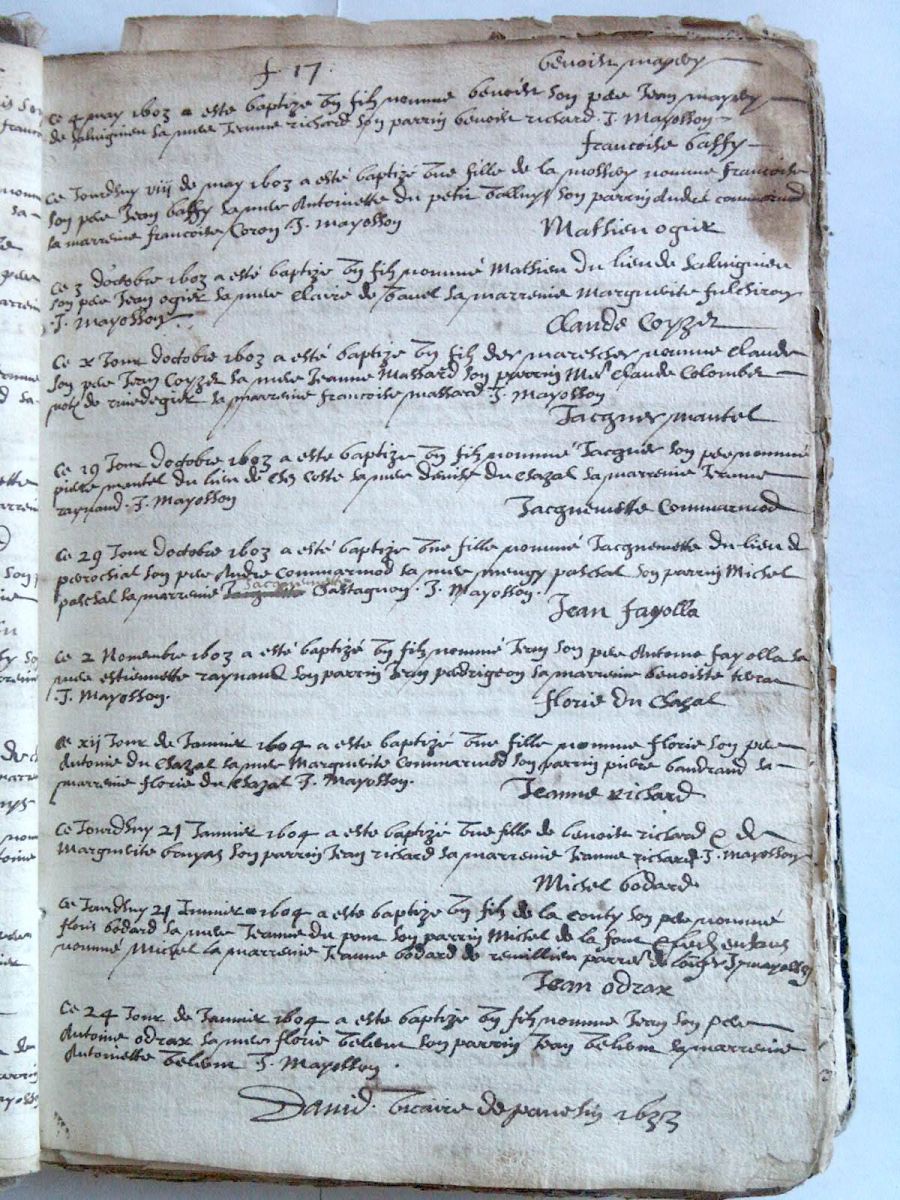 f. 17.
benoist mapey
Ce 4 may 1603 a este baptize ung filz nomme benoist son pere Jean mapey
de Salvignieu sa mere Jeanne richard son parrin benoist richard. J. Mayosson
francoise baffy
Ce Jourdhuy viij de may 1603 a esté baptizé une fille de la nomme francoise
son pere Jean baffy sa mere Antoinette du petit son parrin André commarmod
la marreine francoise Coron. J. Mayosson
Mathieu ogier
Ce 3 doctobre 1603 a esté baptize ung filz nommé Mathieu du lieu de Salvignieu
son pere Jean ogier sa mere Claire de sa marreine Marguerite fulchiron
.J. Mayosson.
Claude Coyzet
Ce x Jour doctobre 1603 a esté baptize ung filz des maresches nomme Claude
son pere Jean Coyzet sa mere Jeanne Massard son parrin Me Claude Colombet
not. de rivedegier sa marreine francoise massard. J. Mayosson
Jacques mantel
Ce 19 Jour doctobre 1603 a este baptize ung filz nommé Jacques son pere nommé
pierre mentel du lieu de Coste sa mere du Chazal sa marreine Jeanne
raynaud. J. Mayosson
Jacquemette Commarmod
Ce 29 Jour doctobre 1603 a esté baptize une fille nommé Jacquemette du lieu de
son pere André Commarmod sa mere paschal son parrin Michel
paschal sa marreine Jacquemette Chatagnon. J. Mayosson.
Jean fayolla
Ce 2 Novembre 1603 a esté baptizé ung filz nommé Jean son pere Antoine fayolla sa
mere estiennette raynaud son parrin Jean sa marreine benoiste
.J. Mayosson.
florie du Chazal
Ce xij Jour de Janvier 1604 a este baptizé une fille nomme florie son pere
Antoine du Chazal sa mere Marguerite Commarmod son parrin pierre baudrand sa
marreine florie du Chazal J. Mayosson.
Jeanne richard
Ce Jourdhuy 21 Janvier 1604 a este baptizé une fille de benoist richard & de
Marguerite son parrin Jean richard sa marreine Jeanne richard. J. Mayosson
Michel bodard
Ce Jourdhuy 21 Janvier 1604 a este baptize ung filz de la son pere nommé
bodard sa mere Jeanne du pont son parrin Michel de la
nommé Michel la marreine Jeanne bodard de J. Mayosson
Jean odrax
Ce 24 Jour de Janvier 1604 a este baptize ung filz nomme Jean son pere
Antoine odrax sa mere florie son parrin Jean sa marreine
Antoinette J. Mayosson.
David. vicaire de 1633